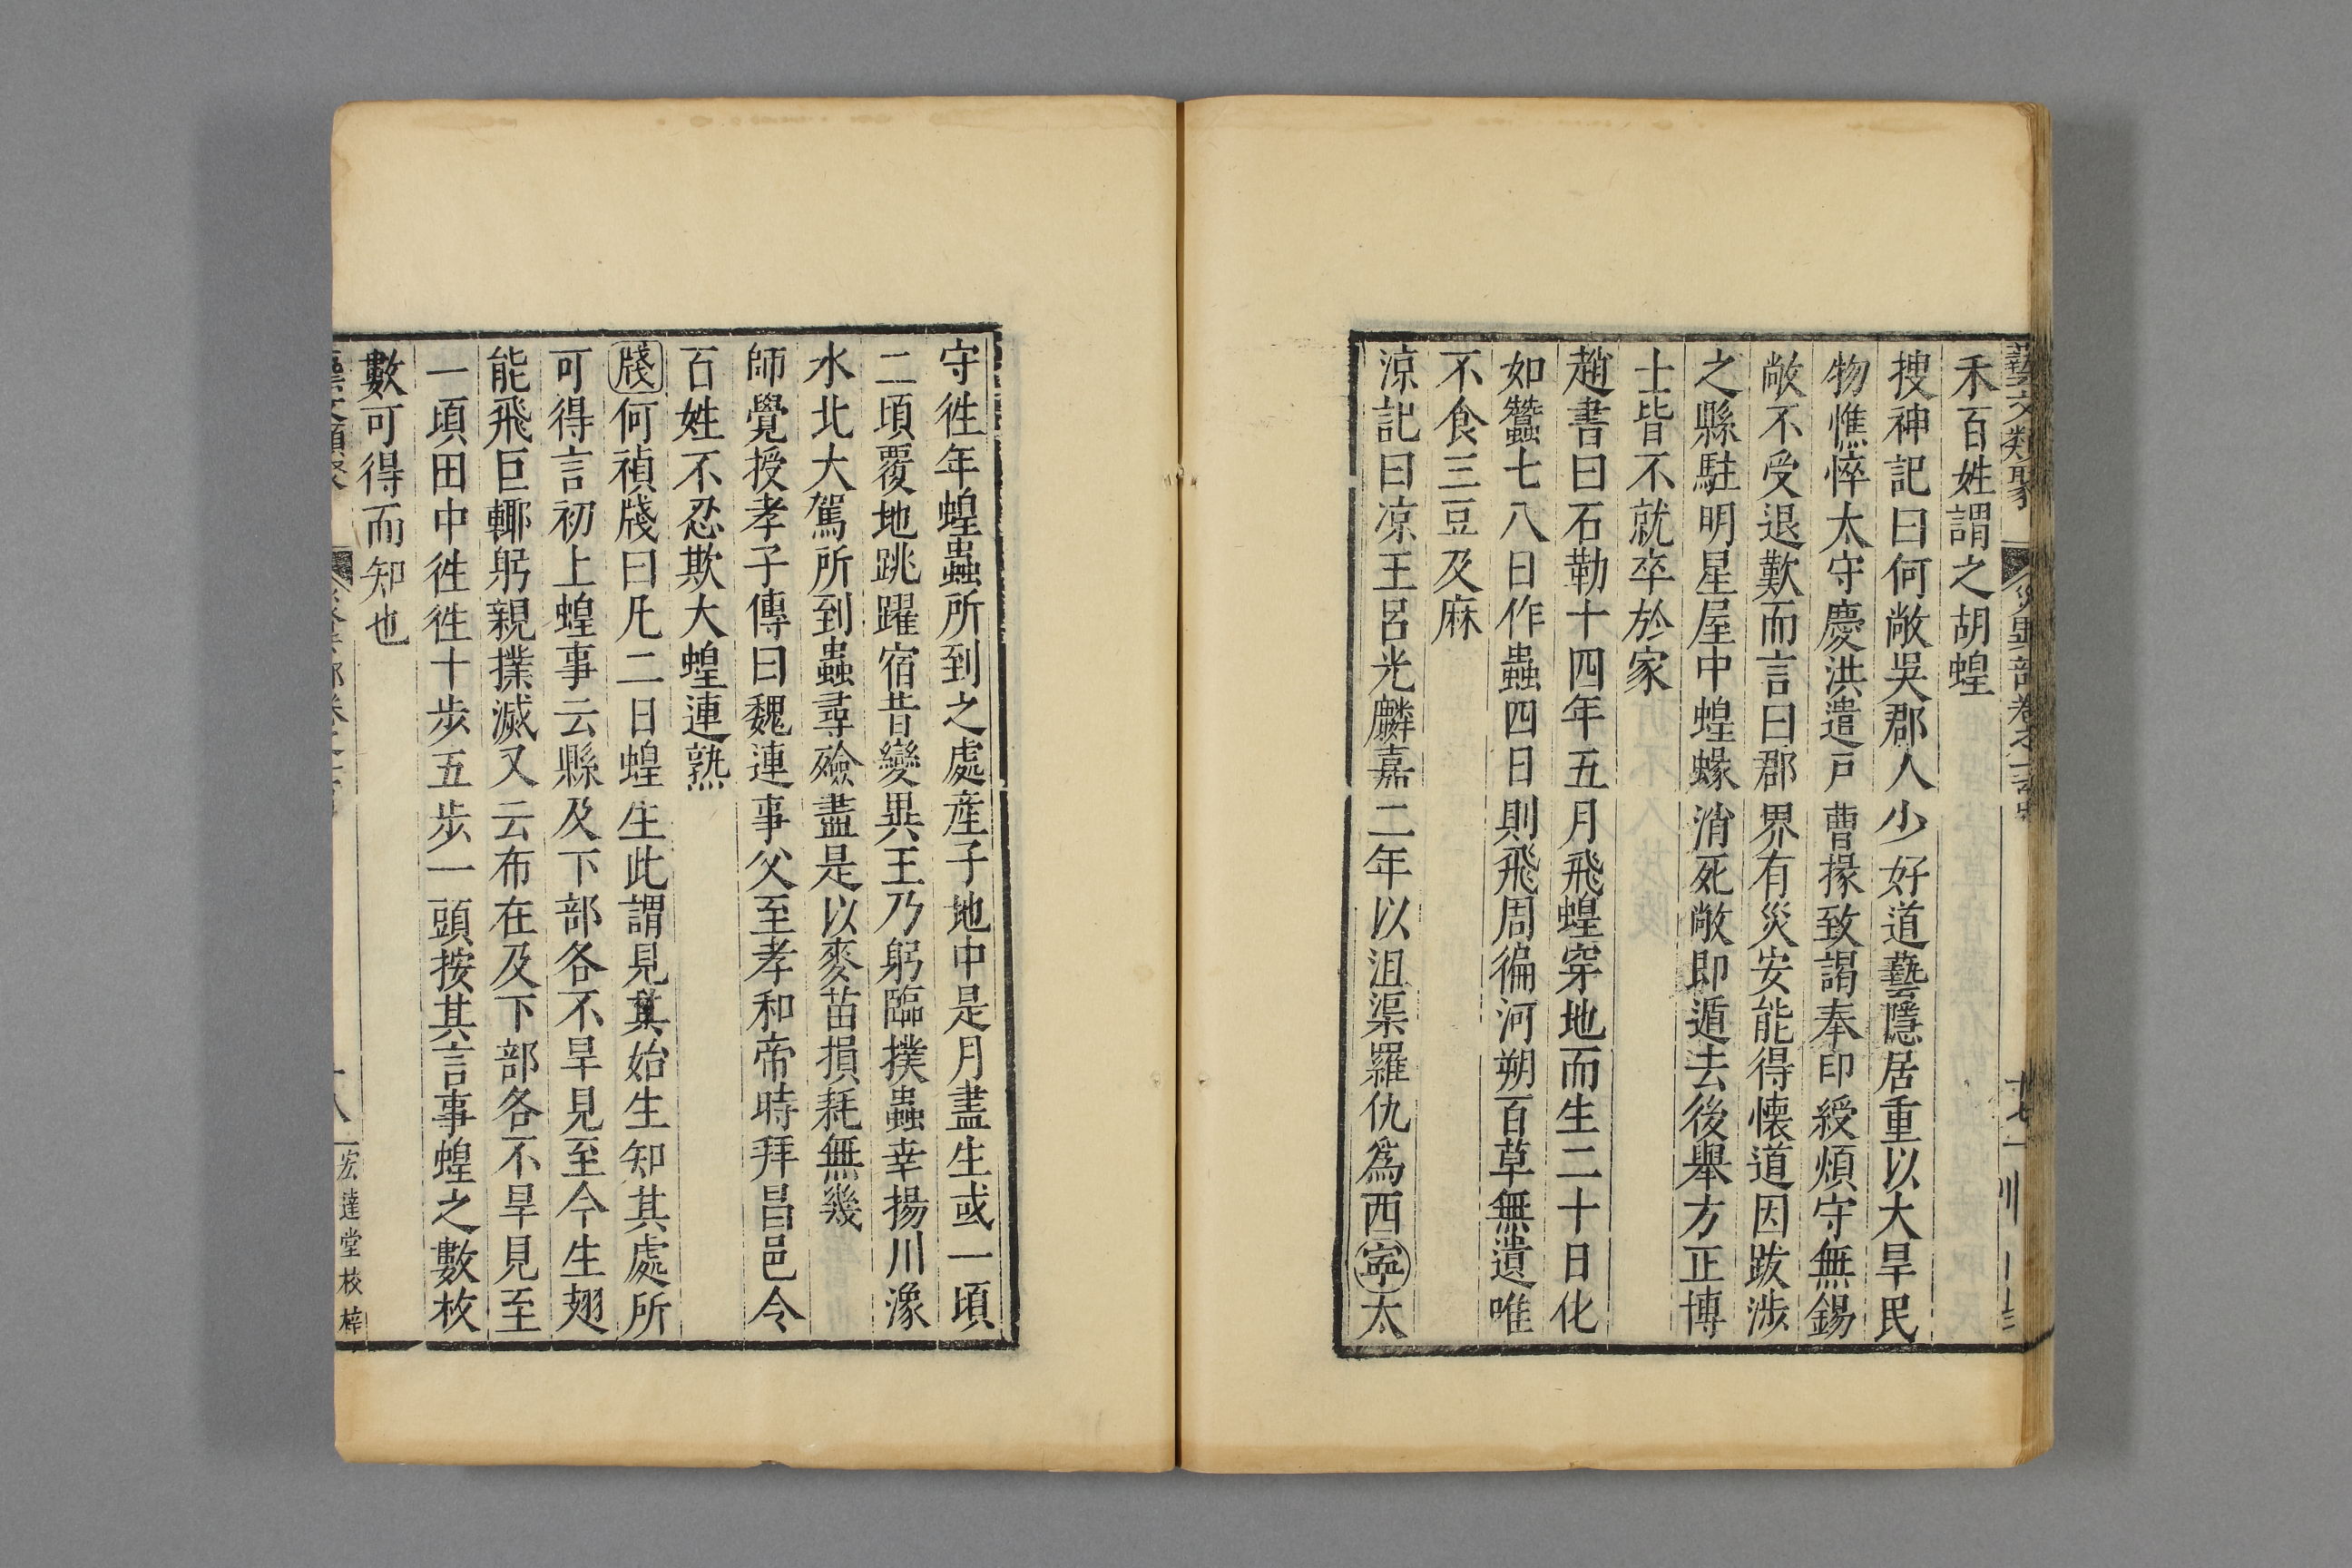 藝文類聚 災異部卷之一百
禾百姓謂之胡蝗
搜神記曰何敞吳郡人少好道藝隱居重以大旱民
物憔悴太守慶洪遣戸曹掾致謁奉印綬煩守無錫
敞不受退歎而言曰郡界有災安能得懐道因跋涉
之縣駐明星屋中蝗蝝消死敞即遁去後舉方正博
士皆不就卒於家
趙書曰石勒十四年五月飛蝗穿地而生二十日化
如蠶七八日作蟲四日則飛周徧河朔百草無遺唯
不食三豆及麻
涼記曰凉王呂光麟嘉二年以沮渠羅仇為西寧太
守徃年蝗蟲所到之處産子地中是月盡生或一頃
二頃覆地跳躍宿昔變異王乃躬臨撲蟲幸揚川豫
水北大駕所到蟲尋殮盡是以麥苗損耗無幾
師覺授孝子傳曰魏連事父至孝和帝時拜昌邑令
百姓不忍欺大蝗連熟
牋何禎牋曰凡二日蝗生此謂見其始生知其處所
可得言初上蝗事云縣及下部各不旱見至今生翅
能飛巨輙躬親撲滅又云布在及下部各不旱見至
一頃田中徃徃十步五步一頭按其言事蝗之數枚
數可得而知也
藝文類聚 十八 宏達堂校梓